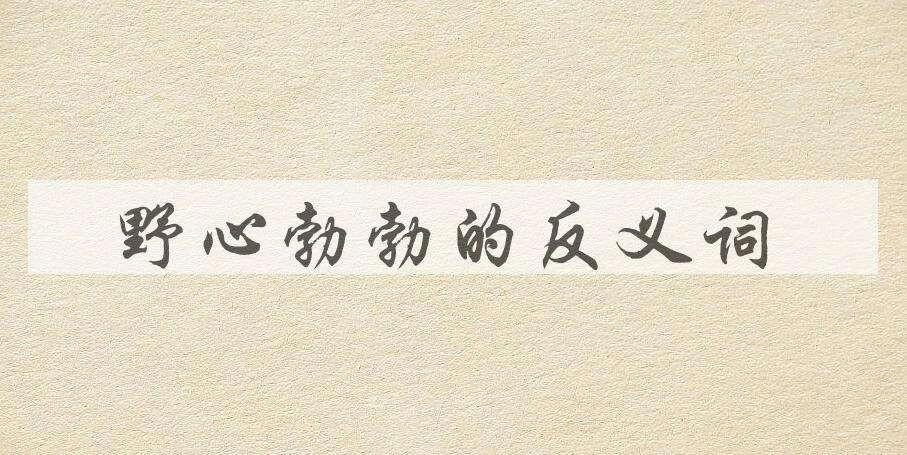 野心勃勃的反义词